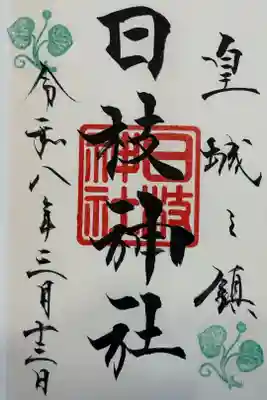 皇城之鎮
日枝神社
日枝神社
令和八年三月十三日